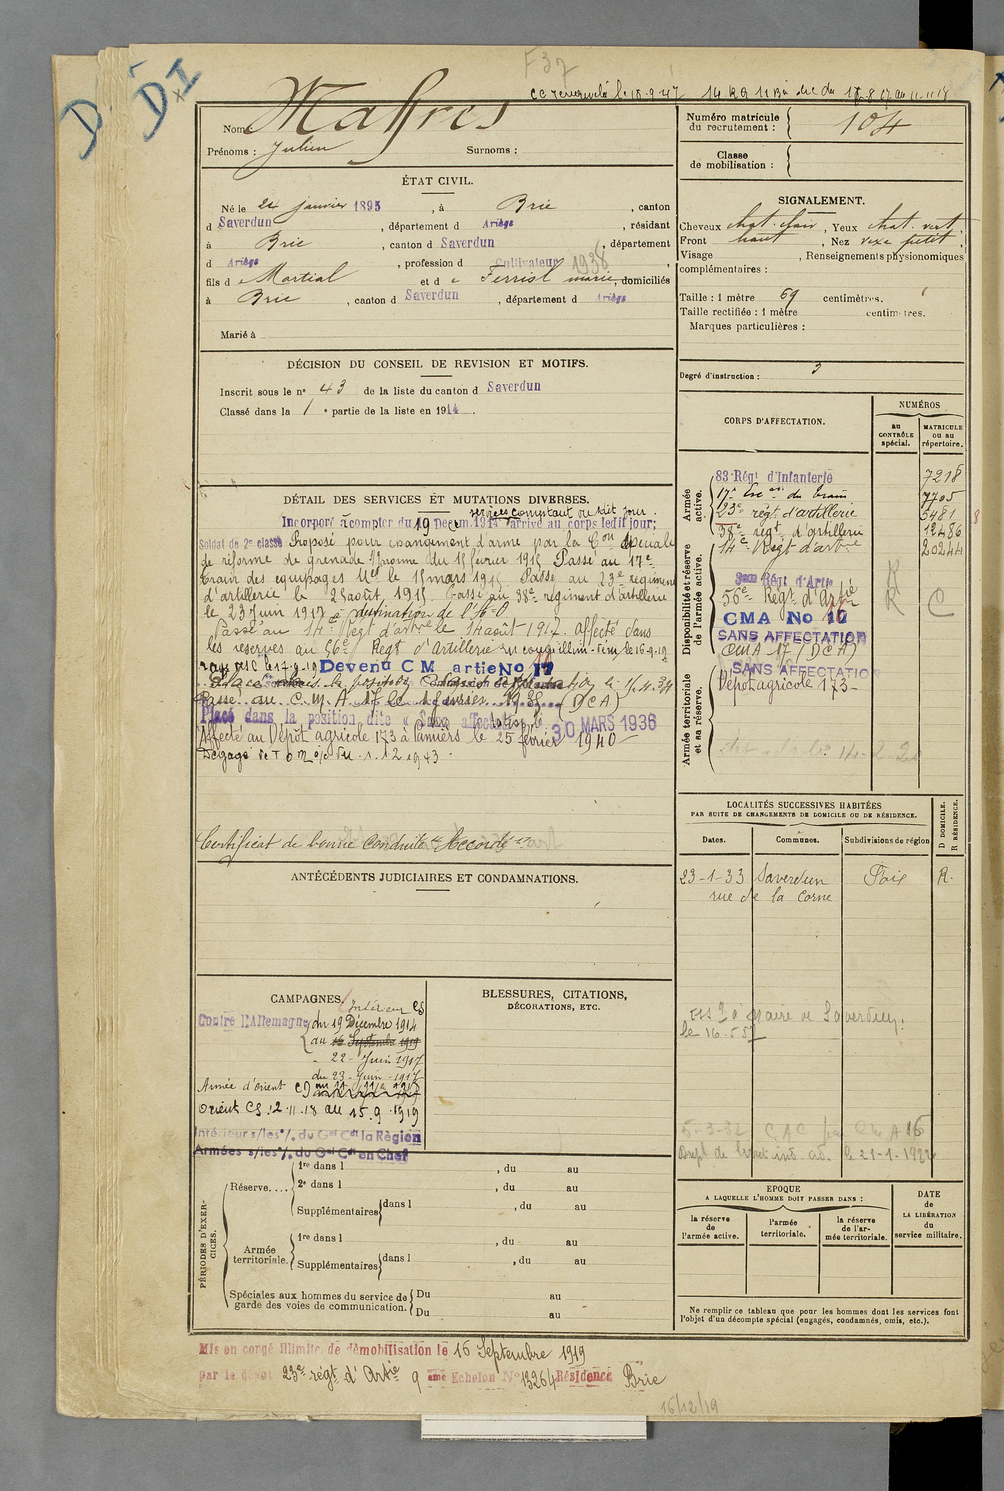 DI
DI
F37
CC renouvelé le 18-9-47 14 RA 11 Bie du 17 8 17 au 11-11-18
Nom Maffres
Prénoms : Julien Surnoms :
Numéro matricule du recrutement : 104
Classe de mobilisation :
ÉTAT CIVIL.
Né le 24 janvier 1895, à Brie, canton
d Saverdun, département d Ariège, résidant
à Brie, canton d Saverdun, département
d Ariège, profession d Cultivateur 1938
fils d e Martial et d e Ferrisl marie, domiciliés
à Brie, canton d Saverdun, département d Ariège
Marié à
SIGNALEMENT.
Cheveux chat. clair, Yeux chat. vert,
Front haut, Nez vexe petit,
Visage , Renseignements physionomiques
complémentaires :
Taille : 1 mètre 69 centimètres.
Taille rectifiée : 1 mètre centimètres.
Marques particulières :
Degré d'instruction : 3
DÉCISION DU CONSEIL DE REVISION ET MOTIFS.
Inscrit sous le n° 43 de la liste du canton d Saverdun
Classé dans la 1e partie de la liste en 1914.
DÉTAIL DES SERVICES ET MUTATIONS DIVERSES.
services comptant du dit jour.
Incorporé à compter du 19 Décem. 1914 arrivé au corps ledit jour;
Soldat de 2e classe Proposé pour changement d'arme par la Con Spéciale
de réforme de grenade /Garonne du 15 février 1915 Passé au 17e
train des équipages Mres le 15 mars 1915. Passé au 23e régiment
d'artillerie le 28 août 1915. Passé au 38e régiment d'artillerie
le 23 Juin 1917 à destination de l'A-O
Passé au 14e Régt d'artie le 14 août 1917. Affecté dans
les réserves au 56e Régt d'Artillerie
Devenu CM artie No 17
Placé dans la position
Passé au C.M.A. 17 le 1 janvier 1935 (DCA)
Placé dans la position dite « Sans affectation » le 30 MARS 1936
Affecté au Dépôt agricole 173 à Pamiers le 25 février 1940
Dégagé de T O M
Certificat de bonne conduite "Accordé"
ANTÉCÉDENTS JUDICIAIRES ET CONDAMNATIONS.
CORPS D'AFFECTATION.
NUMÉROS
AU CONTRÔLE spécial.
MATRICULE ou au répertoire.
Armée active.
Disponibilité et réserve de l'armée active.
Armée territoriale et sa réserve.
83e Régt d'Infanterie 7218
17e Escon du train 7705
23e régt d'artillerie 5481 8
38e régt d'artillerie 12486
14e Régt d'artie 20244
Régt d'Artie R
56e Régt d'Artie R C
CMA No 17
SANS AFFECTATION
CMA 17 (DCA)
SANS AFFECTATION
Dépôt agricole 173
LOCALITÉS SUCCESSIVES HABITÉES
PAR SUITE DE CHANGEMENTS DE DOMICILE OU DE RÉSIDENCE.
Dates. Communes. Subdivisions de région D DOMICILE. R RÉSIDENCE.
23-1-33 Saverdun Foix R.
rue de la Corne
le 16-5-57
CAMPAGNES.
Intérieur CS
Contre l'Allemagne du 19 Décembre 1914
au 16 Septembre 1919
22 - Juin 1917
du 23 - Juin - 1917
Armée d'orient CD
Orient CS. 12.11.18 au 15.9.1919
Intérieur s/les % du Gal Cdt la Région
Armées s/les % du Gal Cdt en Chef
BLESSURES, CITATIONS,
DÉCORATIONS, ETC.
PÉRIODES D'EXERCICES.
Réserve.... 1re dans l , du au
2e dans l , du au
Supplémentaires dans l , du au
Armée territoriale. 1re dans l , du au
Supplémentaires dans l , du au
Spéciales aux hommes du service de garde des voies de communication. Du au
Du au
EPOQUE
A LAQUELLE L'HOMME DOIT PASSER DANS :
la réserve de l'armée active.
l'armée territoriale.
la réserve de l'armée territoriale.
DATE DE LA LIBÉRATION du service militaire.
Ne remplir ce tableau que pour les hommes dont les services font
l'objet d'un décompte spécial (engagés, condamnés, omis, etc.).
Mis en congé illimité de démobilisation le 16 Septembre 1919
par le dépôt 23e régt d'Artie 9 ème Echelon N° 13264 Résidence Brie
16/12/19